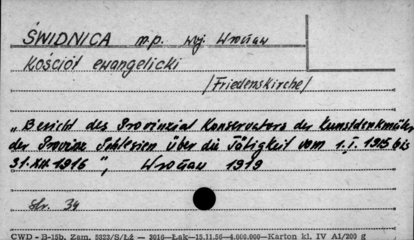 ŚWIDNICA m.p. woj. Wrocław
Kościół ewangelicki
/Friedenskirche/
„Bericht des Provinzial Konservators der Kunstdenkmäler
der Provinz Schlesien über die Tätigkeit vom 1.I.1915 bis
31.XII.1916", Wrocław 1919
Str. 34
CWD - B-15b. Zam. 5823/S/Łż — 3010—Łak—15.11.56—4.000.000—Karton kl. IV A1/200 g